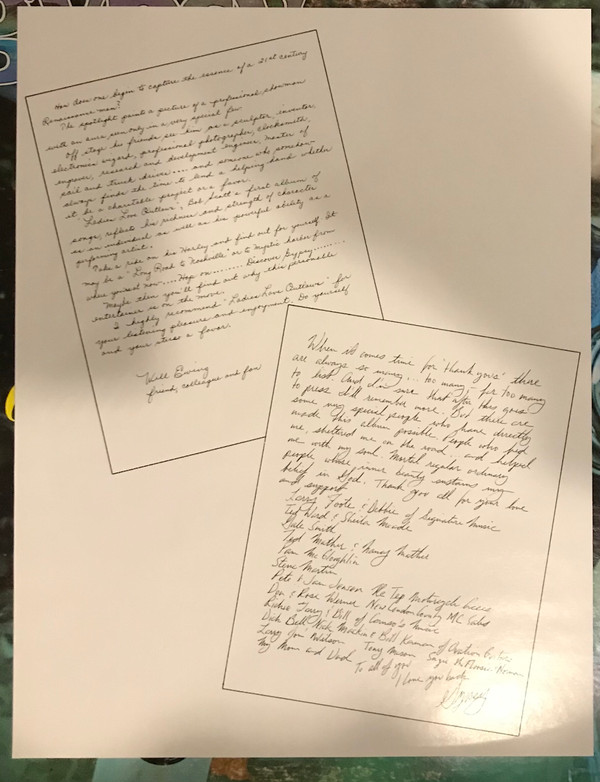 How does one begin to capture the essence of a 21st century
Renaissance man?
The spotlight paints a picture of a professional showman
with an aura seen only in a very special few.
Off stage his friends see him as a sculptor, inventor,
electronics wizard, professional photographer, blacksmith,
engraver, research and development engineer, master of
sail and truck driver.... and someone who somehow
always finds the time to lend a helping hand whether
it be a charitable project or a favor.
"Ladies Love Outlaws", Bob Scott's first album of
songs, reflects his richness and strength of character
as an individual as well as his powerful ability as a
performing artist.
Take a ride on his Harley and find out for yourself. It
may be a "Long Road to Nashville" or to Mystic harbor from
where you're at now.... Hop on........ Discover Gypsy........
Maybe then you'll find out why this personable
entertainer is on the move.
I highly recommend "Ladies Love Outlaws" for
your listening pleasure and enjoyment. Do yourself
and your stereo a favor.
Will Ewing
friend, colleague and fan
When it comes time for "thank you's" there
are always so many... too many; far too many
to list. And I'm sure that after this goes
to press I'll remember more. But there are
some very special people who have directly
made this album possible. People who fed
me, sheltered me on the road... and helped
me with my soul. Mortal regular ordinary
people whose inner beauty sustains my
belief in God. Thank you all for your love
and support.
Larry Foote & Debbie of Signature Music
Ted Ward & Sheila
Dale Smith
Todd Mather & Nancy Mather
Pam McGloughlin
Steve Martin
Pete & Jan Jenson The Tep Motorcycle
Don & Rose Werner New London County MC
Richie Terry & Bill of Music
Dick Bell Nick & Bill of Ovation
Larry Jon Watson Tony Mason
My Mom and Dad
To all of you
I love you back
Gypsy